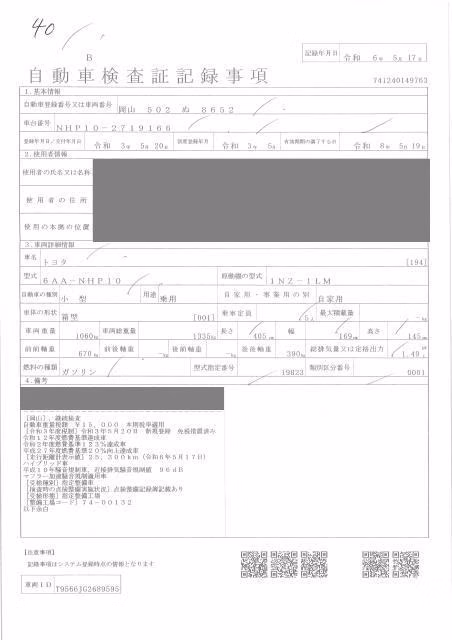 40
B
記録年月日 令和 6年 5月 17日
自動車検査証記録事項
741240149763
1.基本情報
自動車登録番号又は車両番号 岡山 502 ぬ 8652
車台番号 NHP10-2719166
登録年月日/交付年月日 令和 3年 5月 20日 初度登録年月 令和 3年 5月 有効期間の満了する日 令和 8年 5月 19日
2.使用者情報
使用者の氏名又は名称
使用者の住所
使用の本拠の位置
3.車両詳細情報
車名 トヨタ [194]
型式 6AA-NHP10 原動機の型式 1NZ-1LM
自動車の種別 小型 用途 乗用 自家用・事業用の別 自家用
車体の形状 箱型 [001] 乗車定員 5人 最大積載量 -kg
車両重量 1060kg 車両総重量 1335kg 長さ 405cm 幅 169cm 高さ 145cm
前前軸重 670kg 前後軸重 -kg 後前軸重 -kg 後後軸重 390kg 総排気量又は定格出力 1.49L
燃料の種類 ガソリン 型式指定番号 19823 類別区分番号 0001
4.備考
[岡山], 継続検査
自動車重量税額 ¥15,000 本則税率適用
[令和3年度税制] 令和3年5月20日 新規登録 免税措置済み
令和12年度燃費基準達成車
令和2年度燃費基準123%達成車
平成27年度燃費基準20%向上達成車
[走行距離計表示値] 25,300km (令和6年5月17日)
ハイブリッド車
平成10年騒音規制車、近接排気騒音規制値 96dB
マフラー加速騒音規制適用車
[受検種別] 指定整備車
[検査時の点検整備実施状況] 点検整備記録簿記載あり
[受検形態] 指定整備工場
[整備工場コード] 74-00132
以下余白
【注意事項】
記録事項はシステム登録時点の情報となります
車両ID T9566JG2689595